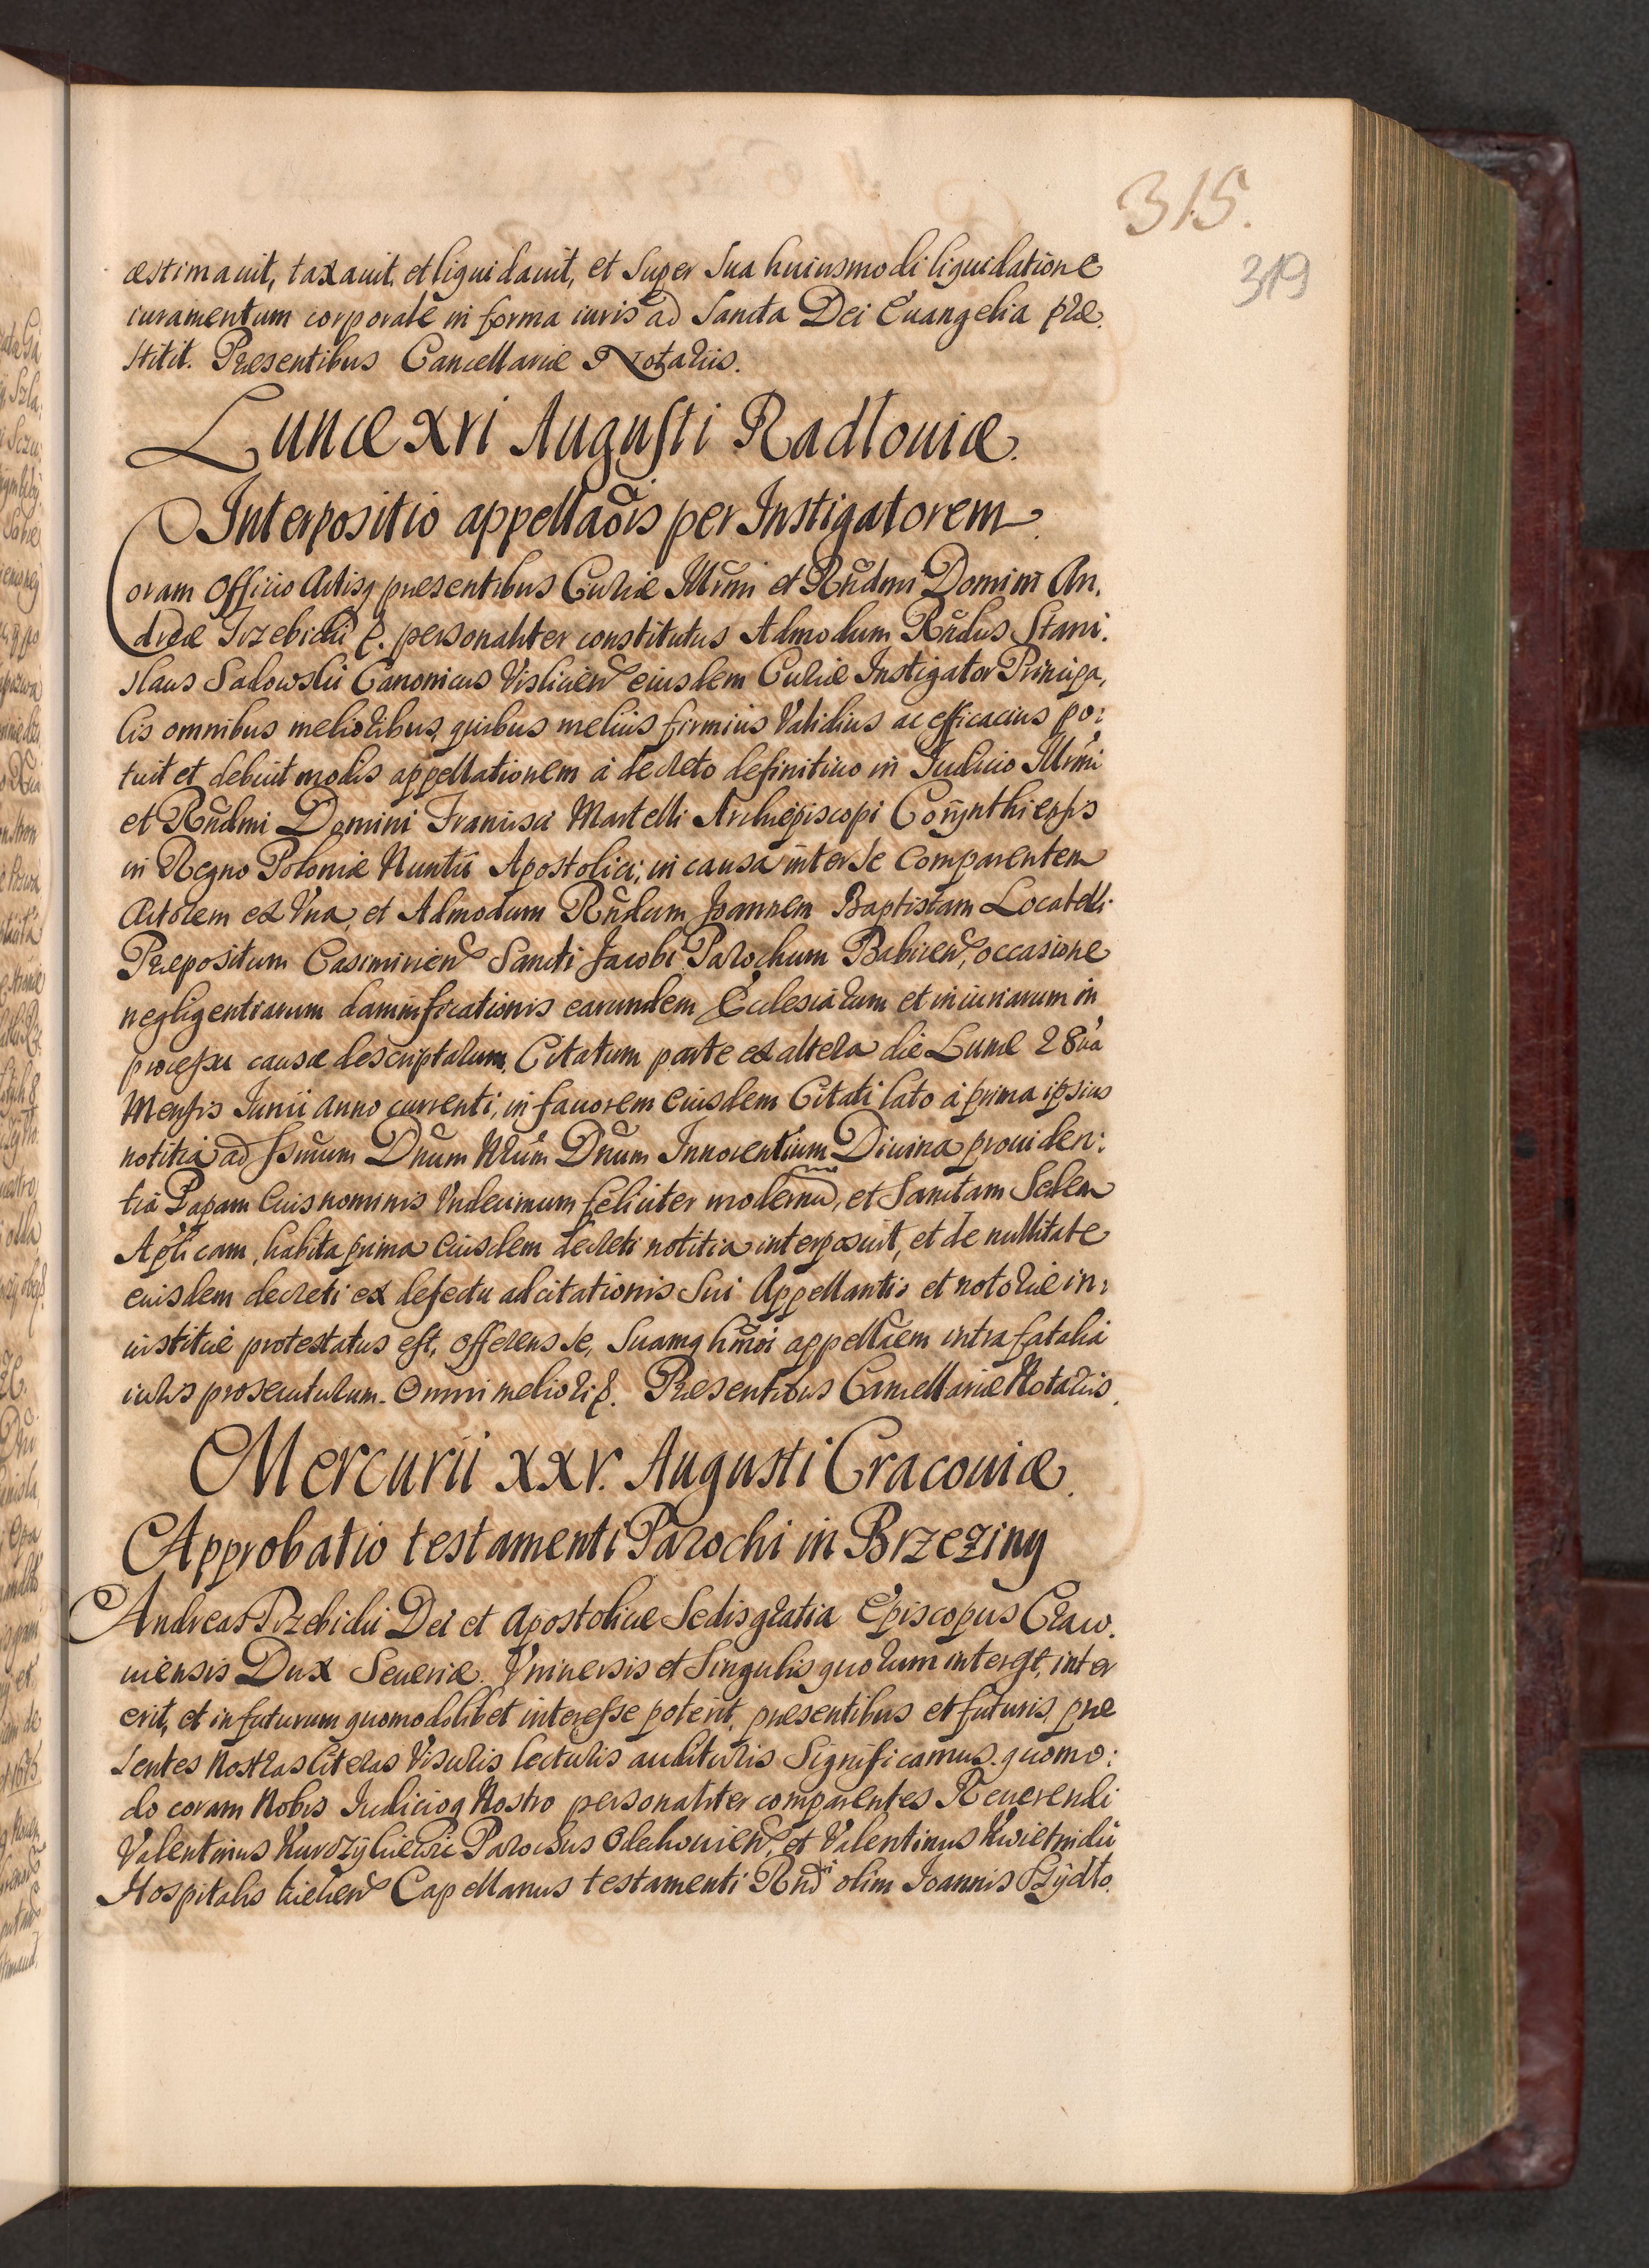 315.
319
æstimauit, taxauit, et liquidauit, et super sua huiusmodi liquidatione
iuramentum corporale in forma iuris ad Sancta Dei Euangelia præ.
stitit. Præsentibus Cancellariæ Notariis.
Lunæ XVI Augusti Radlouiæ.
Interpositio appellaõis per Instigatorem.
Coram Officio Actisq præsentibus Curiæ Illrmi et Rndmi Domini An.
dreæ Trzebicki &. personaliter constitutus Admodum Rndus Stani.
slaus Sadowski Canonicus Vislicien eiusdem Curiæ Instigator Principa,
lis omnibus melioribus, quibus melius firmius Validius ac efficacius po:
tuit et debuit modis appellationem à decreto definitiuo in Iudicio Illrmi
et Rndmi Domini Francisci Martelli Archiepiscopi Corynthiensis
in Regno Poloniæ Nuntii Apostolici, in causa inter se Comparentem
Actorem ex Vna, et Admodum Rndum Joannem Baptistam Locatelli
Præpositum Casimirien Sancti Jacobi Parochum Babicen, occasione
negligentiarum damnificationis earundem Ecclesiarum et iniuriarum in
processu causæ descriptarum, Citatum parte ex altera die Lunæ 28ua
Mensis Iunii Anno currenti, in fauorem Eiusdem Citati lato à prima ipsius
notitia ad Ssmum Dnum Nrum Dnum Innocentium Diuina prouiden:
tia Papam Euis nominis Vndecimum feliciter modernu, et Sanctam Sedem
Aplicam, habita prima Eiusdem decreti notitia interposuit, et de nullitate
euisdem decreti ex defectu adcitationis sui Appellantis et notoriæ in:
iustitiæ protestatus est, Offerens se, suamq hmoi appellaem intra fatalia
iuris prosecuturum. Omni meliori &. Præsentibus Cancellariæ Notariis.
Mercurii XXV. Augusti Cracouiæ.
Approbatio testamenti Parochi in Brzeziny
Andreas Trzebicki Dei et Apostolicæ Sedis gratia Episcopus Craco.
uiensis Dux Seueriæ. Vniuersis et Singulis quorum interest, inter
erit, et in futurum quomodolibet interesse poterit, præsentibus et futuris, præ
sentes Nostras literas Visuris lecturis audituris Significamus. quomo:
do coram Nobis Iudicioq Nostro personaliter comparentes Reuerendi
Valentinus Parochus et Valentinus Kwietnicki
Hospitalis Kielcen Capellanus testamenti Rndi olim Joannis Szydlo.